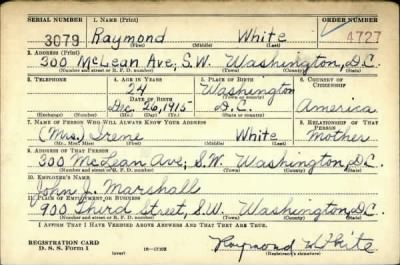 SERIAL NUMBER 1. NAME (Print) ORDER NUMBER
3079 Raymond White 4727
(First) (Middle) (Last)
2. ADDRESS (Print)
300 McLean Ave, S.W. Washington, D.C.
(Number and street or R. F. D. number) (Town) (County) (State)
3. TELEPHONE 4. AGE IN YEARS 5. PLACE OF BIRTH 6. COUNTRY OF CITIZENSHIP
24 Washington
DATE OF BIRTH (Town or county)
Dec. 26, 1915 D.C. America
(Exchange) (Number) (Mo.) (Day) (Yr.) (State or country)
7. NAME OF PERSON WHO WILL ALWAYS KNOW YOUR ADDRESS 8. RELATIONSHIP OF THAT PERSON
(Mrs.) Irene White Mother
(Mr., Mrs., Miss) (First) (Middle) (Last)
9. ADDRESS OF THAT PERSON
300 McLean Ave, S.W. Washington, D.C.
(Number and street or R. F. D. number) (Town) (County) (State)
10. EMPLOYER'S NAME
John J. Marshall
11. PLACE OF EMPLOYMENT OR BUSINESS
900 Third Street, S.W. Washington, D.C.
(Number and street or R. F. D. number) (Town) (County) (State)
I AFFIRM THAT I HAVE VERIFIED ABOVE ANSWERS AND THAT THEY ARE TRUE.
REGISTRATION CARD
D. S. S. Form 1 (over) Raymond White
(Registrant's signature)